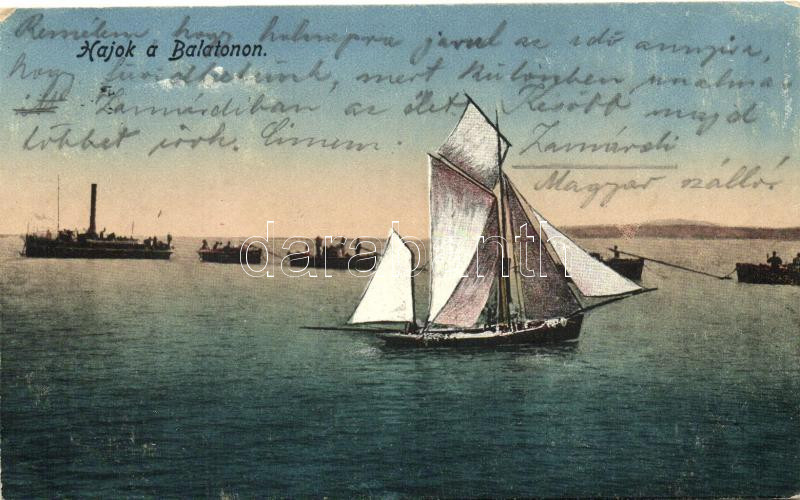 Remélem hogy holnapra javul az idő annyira,
Hajok a Balatonon.
hogy fürödhetünk, mert különben unalmas
itt Zamárdiban az élet. Később majd
többet írok. Címem: Zamárdi
Magyar szálló.
darabanth